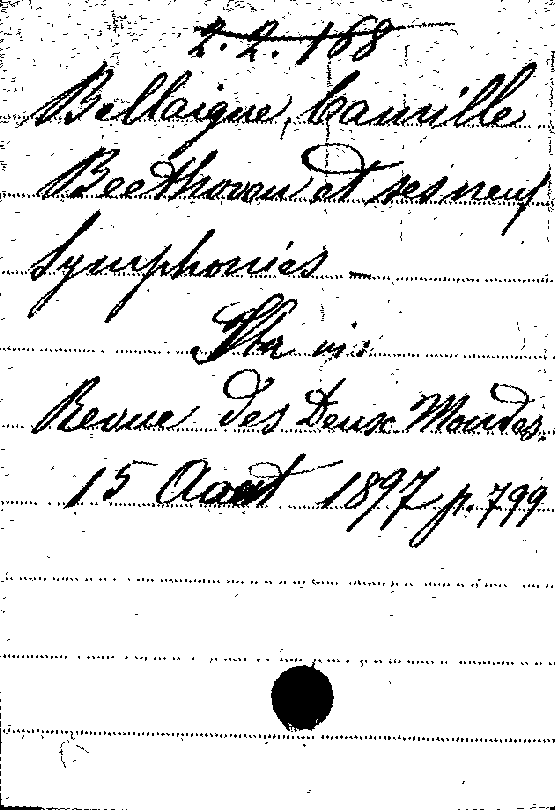 2.2.168
Bellaigue, Camille
Beethoven et ses neuf
Symphonies -
Sta in:
Revue des Deux Mondes.
15 Aout 1897 p. 799